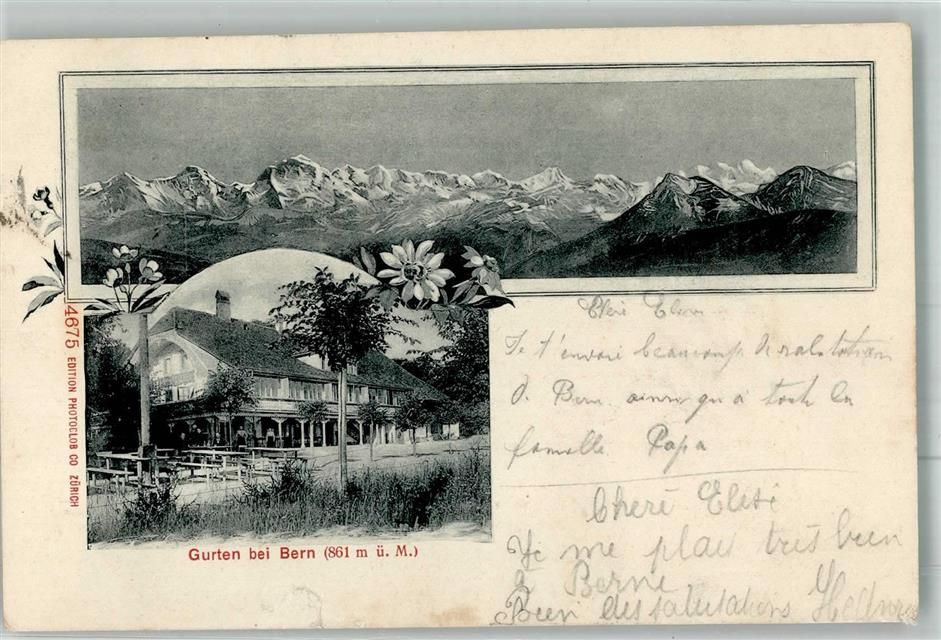 4675 EDITION PHOTOGLOB CO ZÜRICH
Gurten bei Bern (861 m ü. M.)
Je t'envoie beaucoup de salutation
d. Bern ainsi qu'a toute la
famille Papa
Cheré Elesi
Je me plai très bien
a Berne
Bien des salutations